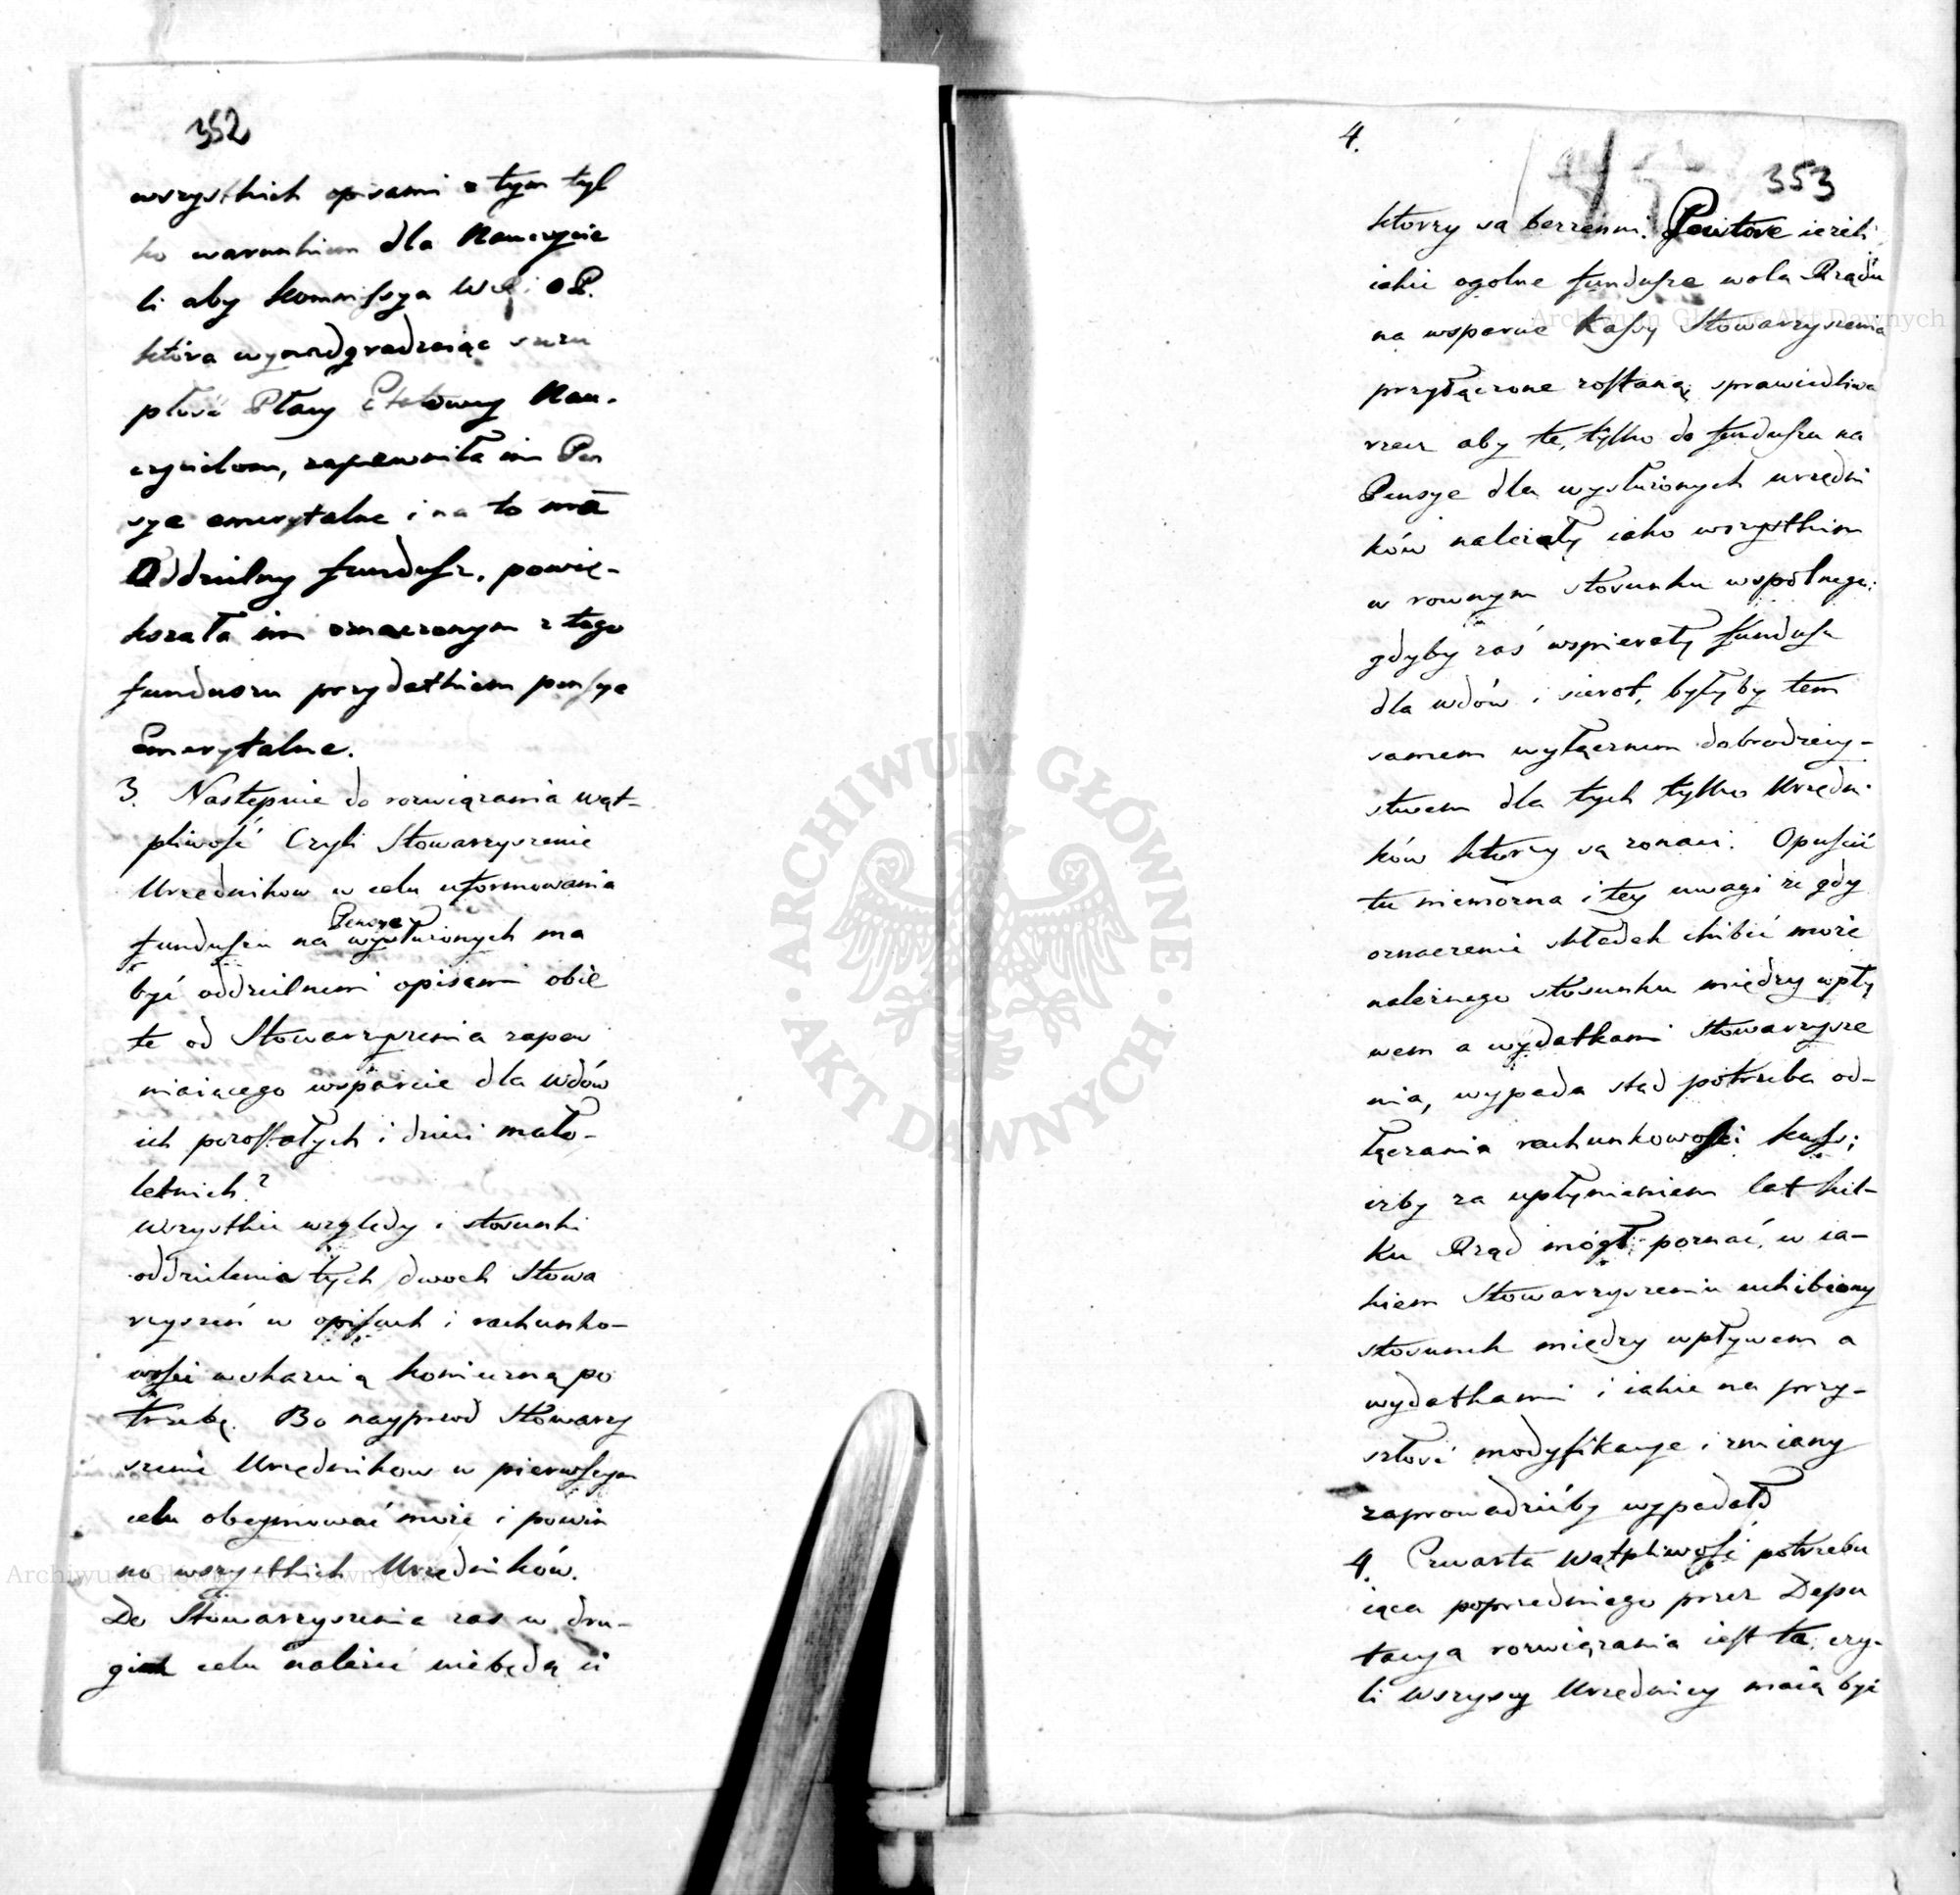 352
wszystkich opisami z tym tyl
ko warunkiem dla Nauczycie
li aby Kommissya W. i O.P.
która wynadgradzaiąc szczu
płość Płacy Etatowey Nau-
czycielom, zapewniła im Pen
sye emerytalne i na to ma
Oddzielny fundusz, powię-
kszała im oznaczonym z tego
funduszu przydatkiem pensye
Emerytalne.
3. Następnie do rozwiązania wąt-
pliwość Czyli Stowarzyszenie
Urzędnikow w celu uformowania
Pensye
funduszu na wysłużonych ma
być oddzielnemi opisami obię
te od Stowarzyszenia zapew
niaiącego wsparcie dla wdów
ich pozostałych i dzieci mało-
letnich?
Wszystkie względy i stosunki
oddzielenia tych dwoch Stowa
rzyszeń w opisach i rachunko-
wości wskazuią konieczną po
trzebę. Bo nayprzod Stowarzy
szenie Urzędnikow w pierwszym
celu obeymować może i powin
no wszystkich Urzędników.
Do Stowarzyszenia zas w dru-
gim celu należeć niebędą ci
4.
353
ktorzy są bezżenni. Powtore ieżeli
iakie ogolne fundusze wola Rządu
na wsparcie Kassy Stowarzyszenia
przyłączone zostaną, sprawiedliwa
rzecz aby te, tylko do funduszu na
Pensye dla wysłużonych urzędni
ków należały iako wszystkim
w rownym stosunku wspólnego;
gdyby zaś wspierały fundusz
dla wdów i sierot, byłyby tem
samem wyłącznem dobrodziey-
stwem dla tych tylko Urzędni
ków ktorzy są żonaci. Opuścić
tu niemożna i tey uwagi że gdy
oznaczenie składek chibić może
należnego stosunku między wpły
wem a wydatkami Stowarzysze
nia, wypada stąd potrzeba od-
łączania rachunkowości kass;
iżby za upłynieniem lat kil-
ku Rząd mógł poznać, w ia-
kiem Stowarzyszeniu uchibiony
stosunek między wpływem a
wydatkami i iakie na przy-
szłość modyfikacye i zmiany
zaprowadzićby wypadało
4. Czwarta Wątpliwość potrzebu
iąca poprzedniego przez Depu
tacya rozwiązania iest ta: czy-
li Wszyscy Urzędnicy maią być
Archiwum Główne Akt Dawnych
Archiwum Główne Akt Dawnych
ARCHIWUM GŁÓWNE
AKT DAWNYCH